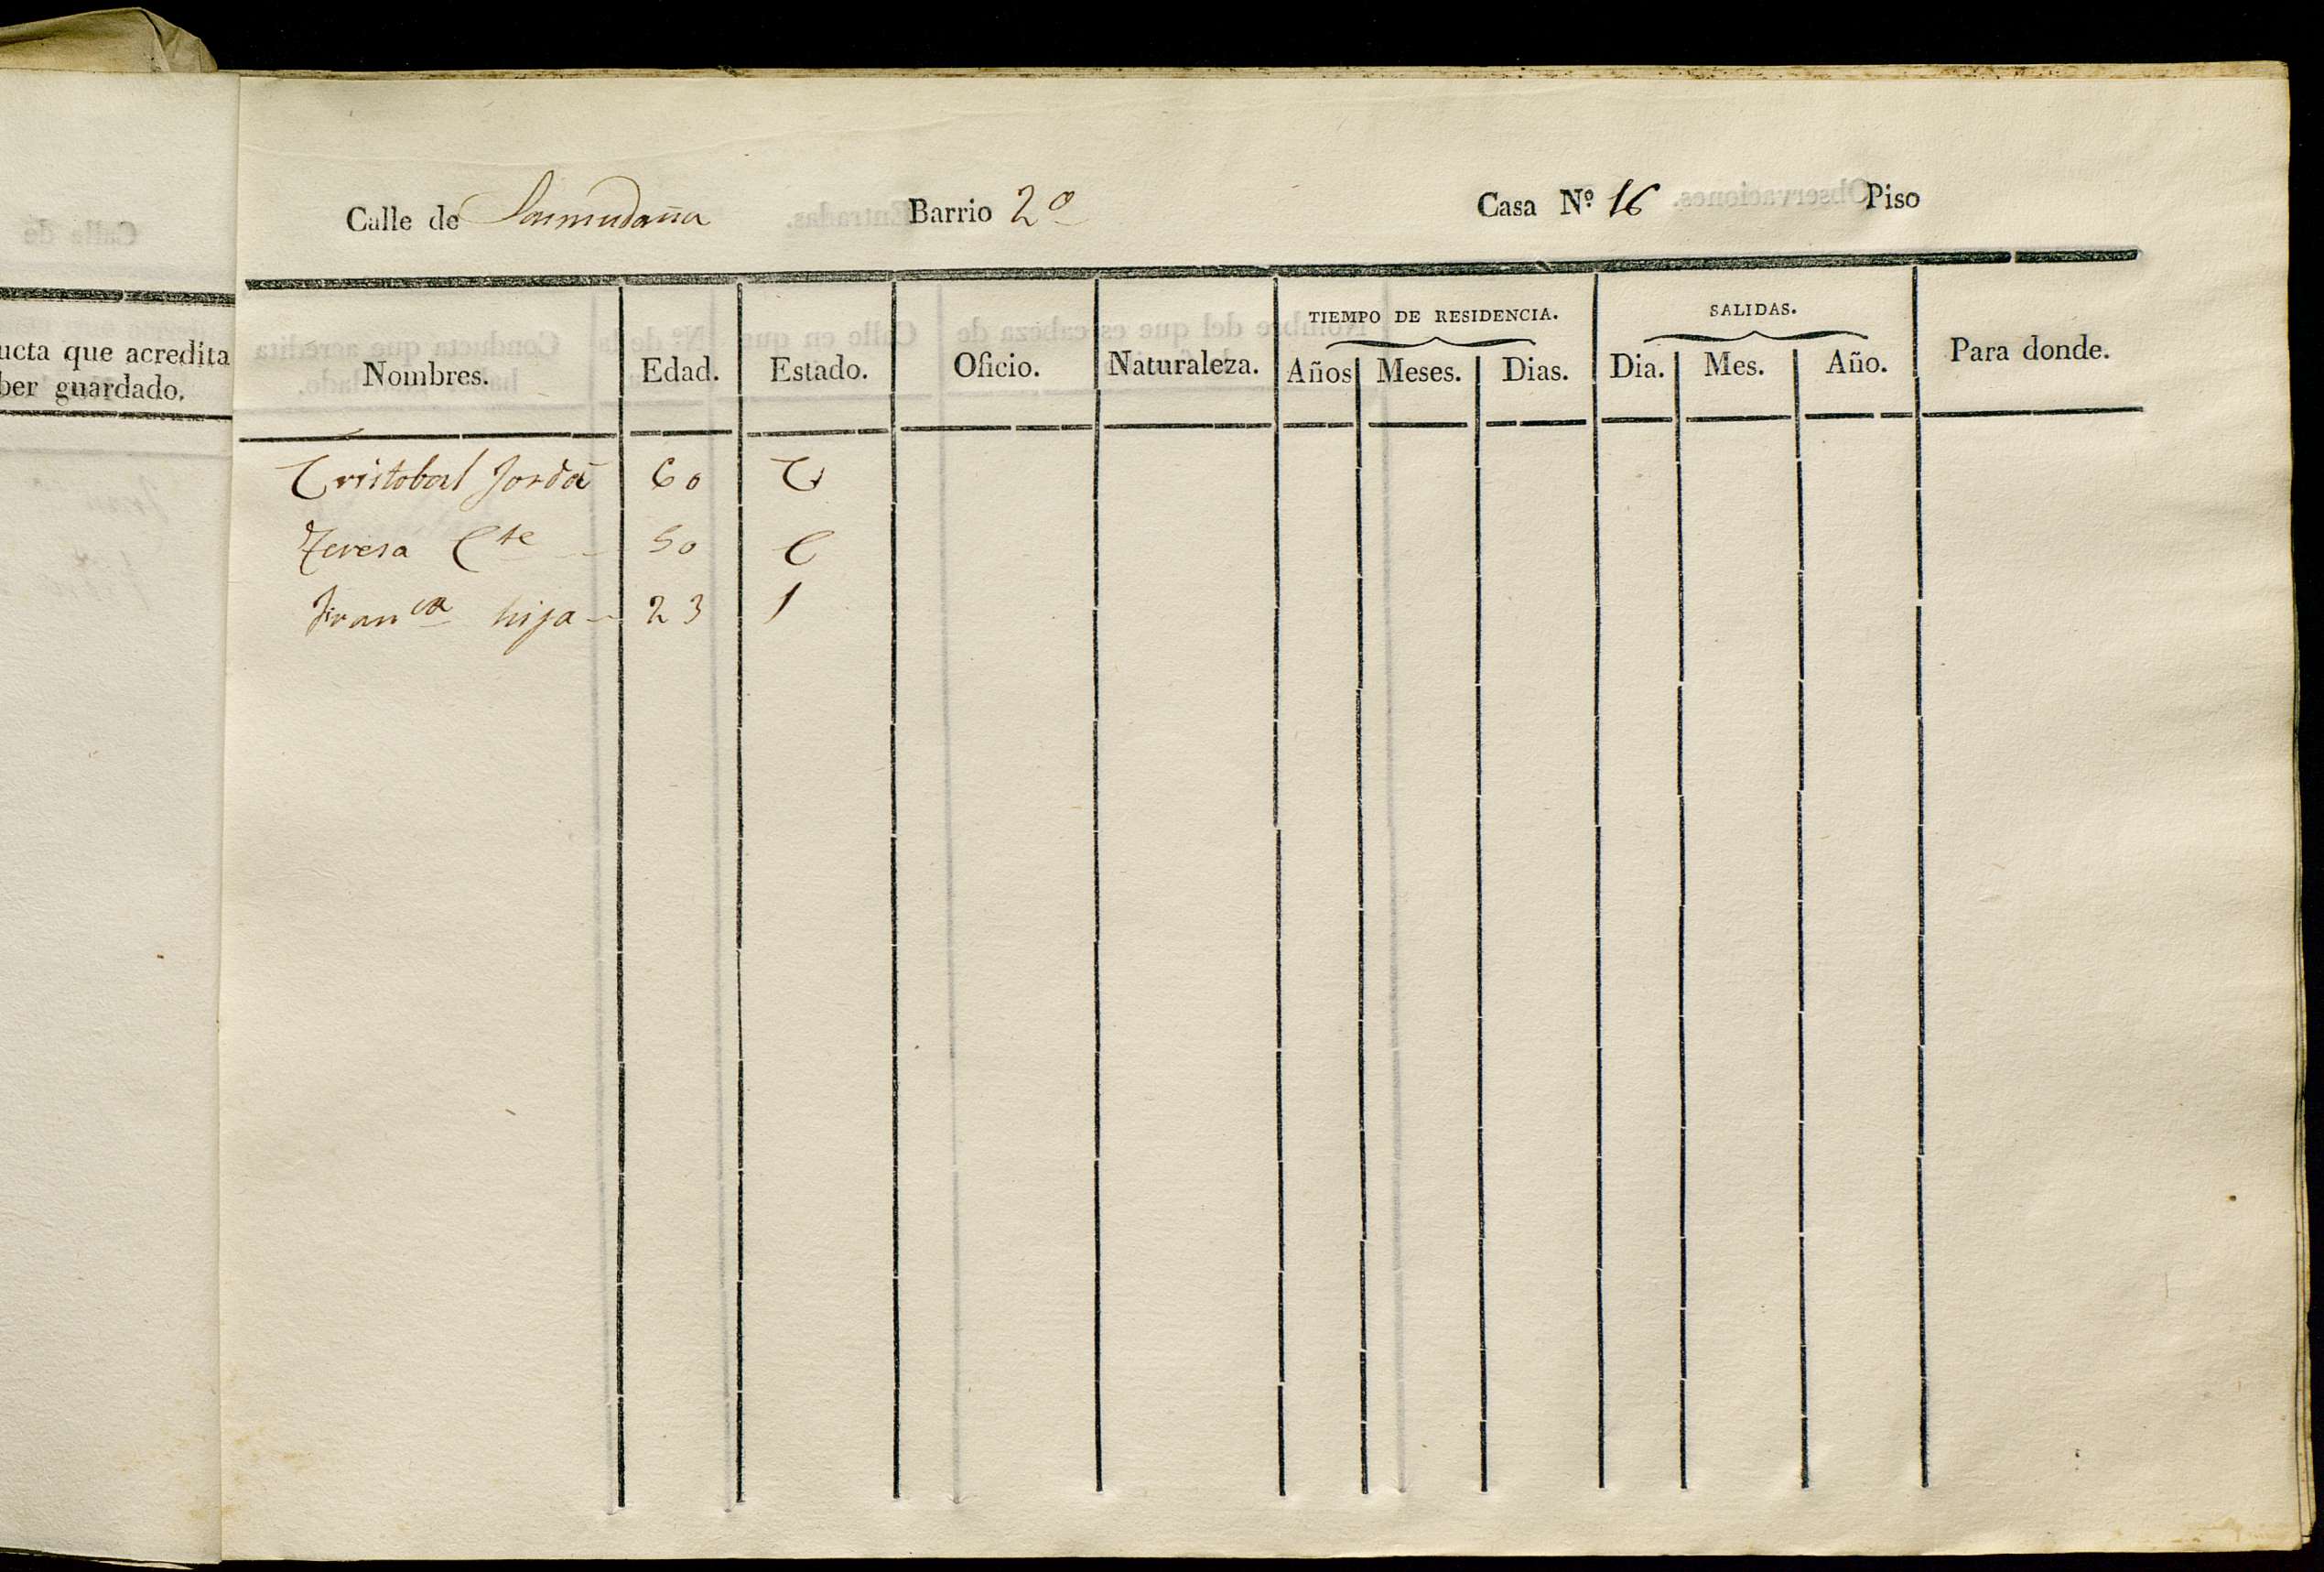 Calle de Barrio 2º Casa Nº 16 Piso
ucta que acredita
ber guardado.
TIEMPO DE RESIDENCIA. SALIDAS.
Nombres. Edad. Estado. Oficio. Naturaleza. Años Meses. Dias. Dia. Mes. Año. Para donde.
Cristobal Jordá 60 C
Teresa Cte 50 C
Franca hija 23